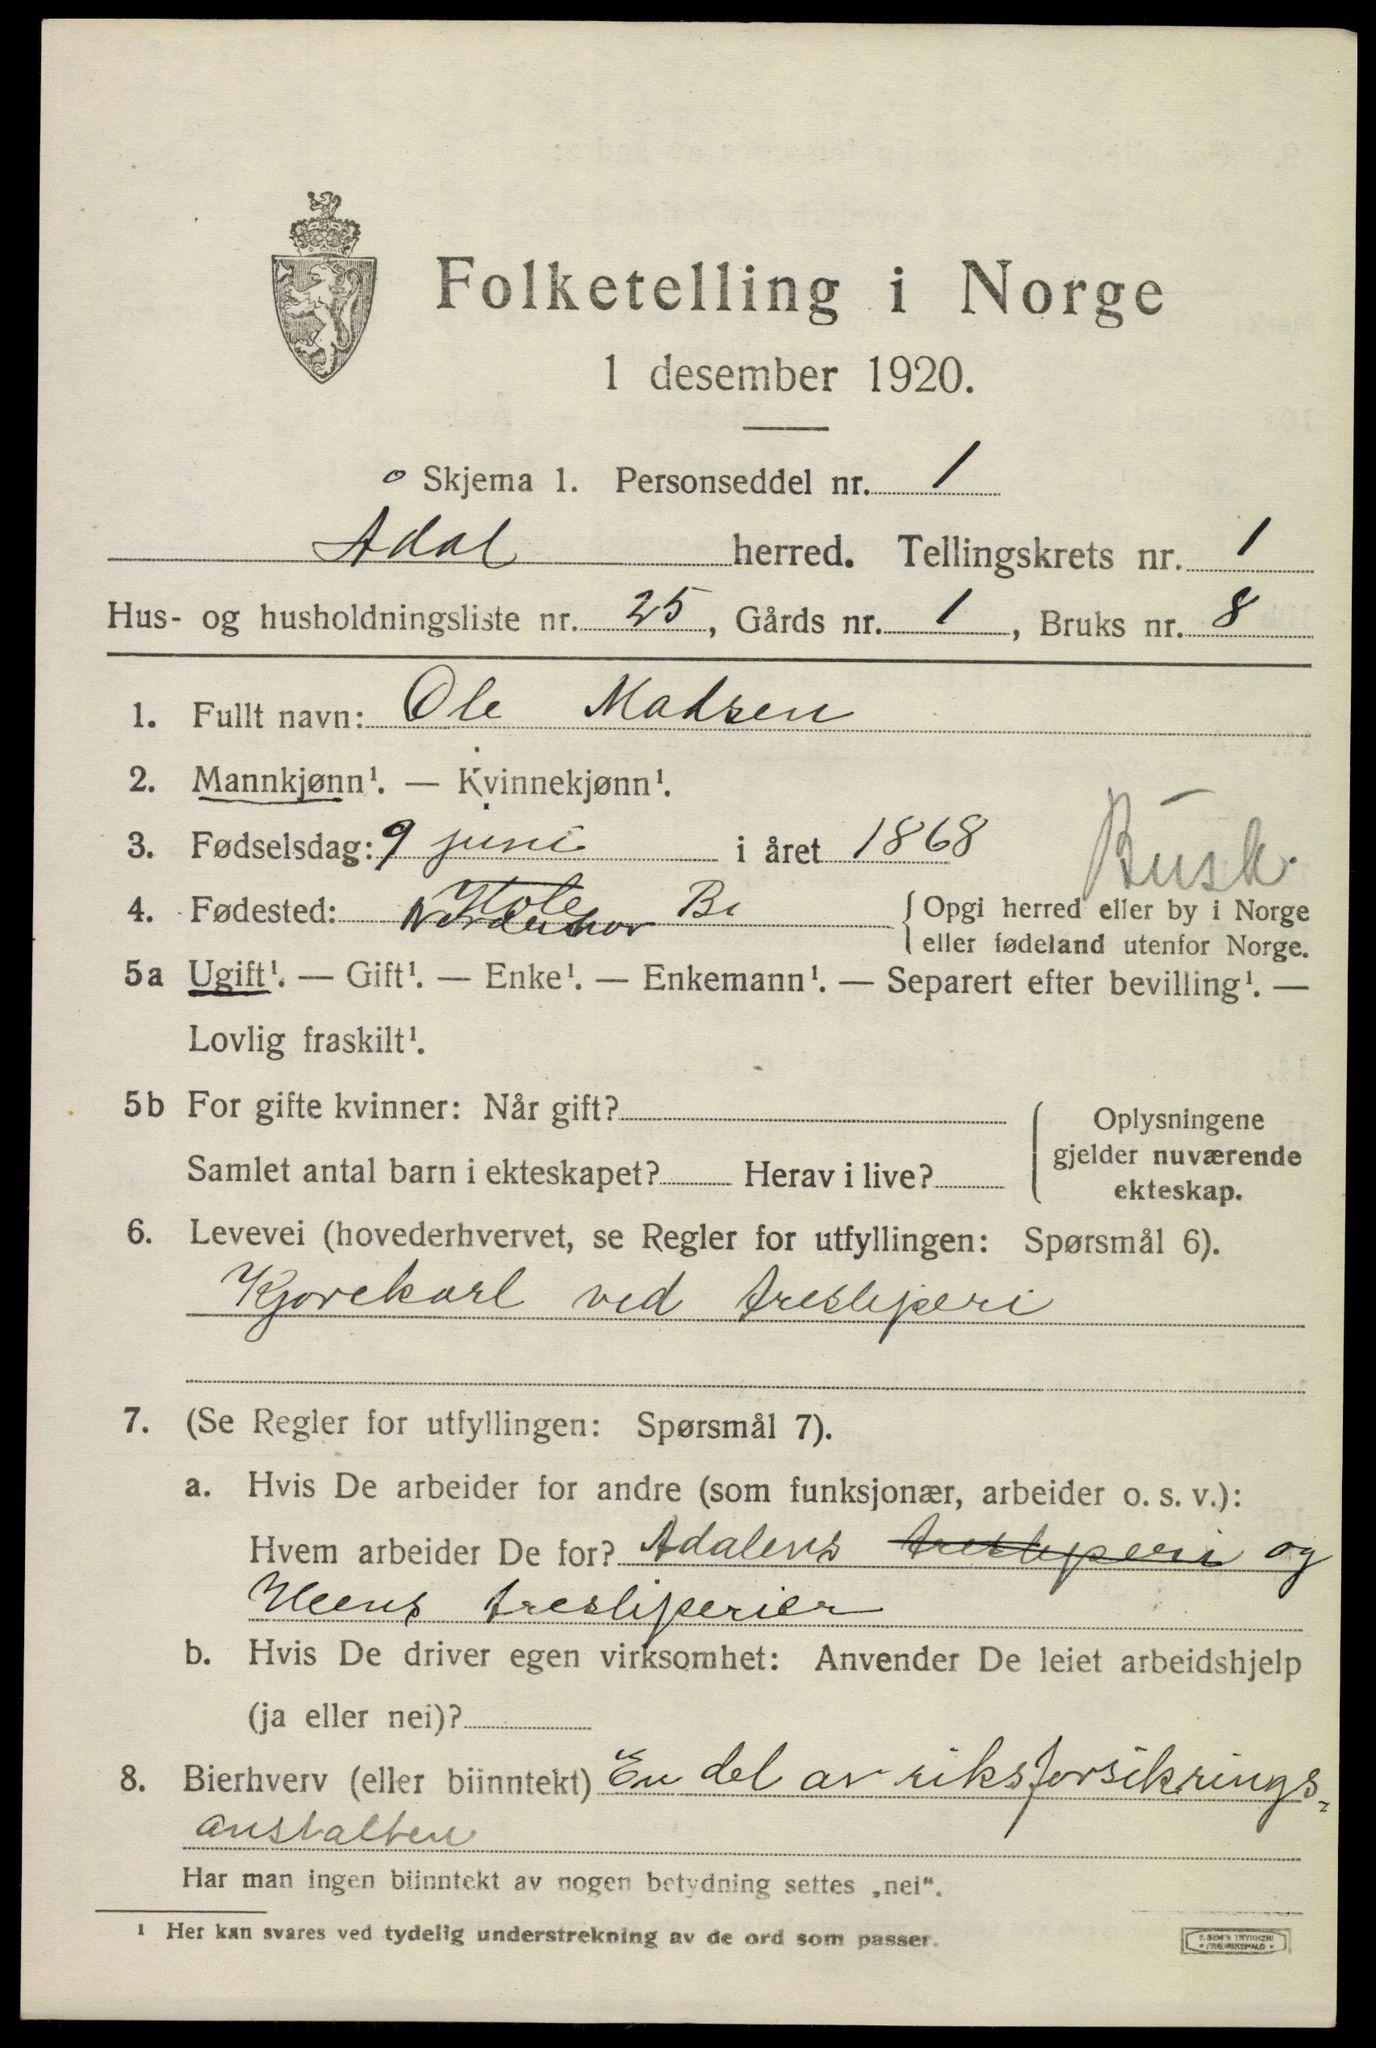 Folketelling i Norge
1 desember 1920.
o Skjema 1. Personseddel nr. 1
Adal herred. Tellingskrets nr. 1
Hus- og husholdningsliste nr. 25, Gårds nr. 1, Bruks nr. 8
1. Fullt navn: Ole Madsen
2. Mannkjønn¹. — Kvinnekjønn¹.
3. Fødselsdag: 9 juni i året 1868
Busk.
Hole
4. Fødested: Norderhov Bu { Opgi herred eller by i Norge
eller fødeland utenfor Norge.
5a Ugift¹. — Gift¹. — Enke¹. — Enkemann¹. — Separert efter bevilling¹. —
Lovlig fraskilt¹.
5b For gifte kvinner: Når gift?
Samlet antal barn i ekteskapet? Herav i live?
{ Oplysningene
gjelder nuværende
ekteskap.
6. Levevei (hovederhvervet, se Regler for utfyllingen: Spørsmål 6).
Kjørekarl ved tresliperi
7. (Se Regler for utfyllingen: Spørsmål 7).
a. Hvis De arbeider for andre (som funksjonær, arbeider o. s. v.):
Hvem arbeider De for? Adalens tresliperi og
Heens tresliperier
b. Hvis De driver egen virksomhet: Anvender De leiet arbeidshjelp
(ja eller nei)?
8. Bierhverv (eller biinntekt) En del av riksforsikrings-
anstalten
Har man ingen biinntekt av nogen betydning settes „nei“.
¹ Her kan svares ved tydelig understrekning av de ord som passer.